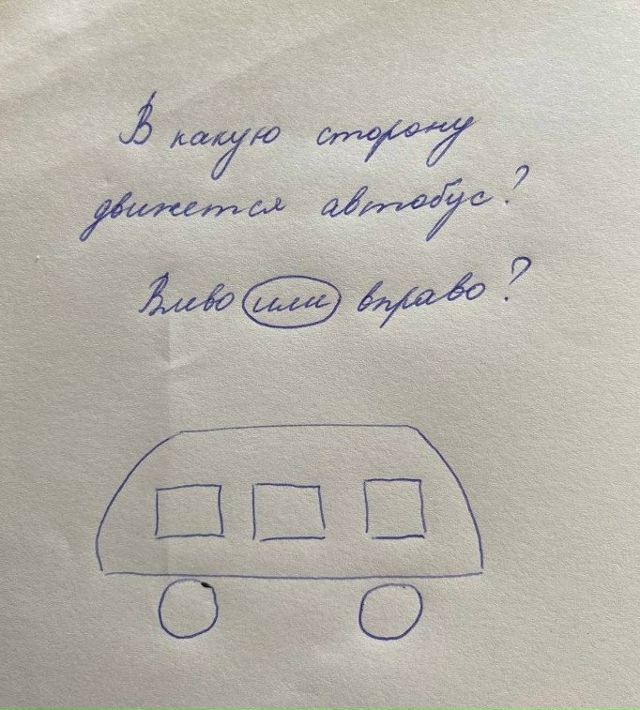 В какую сторону
движется автобус?
Влево или вправо?